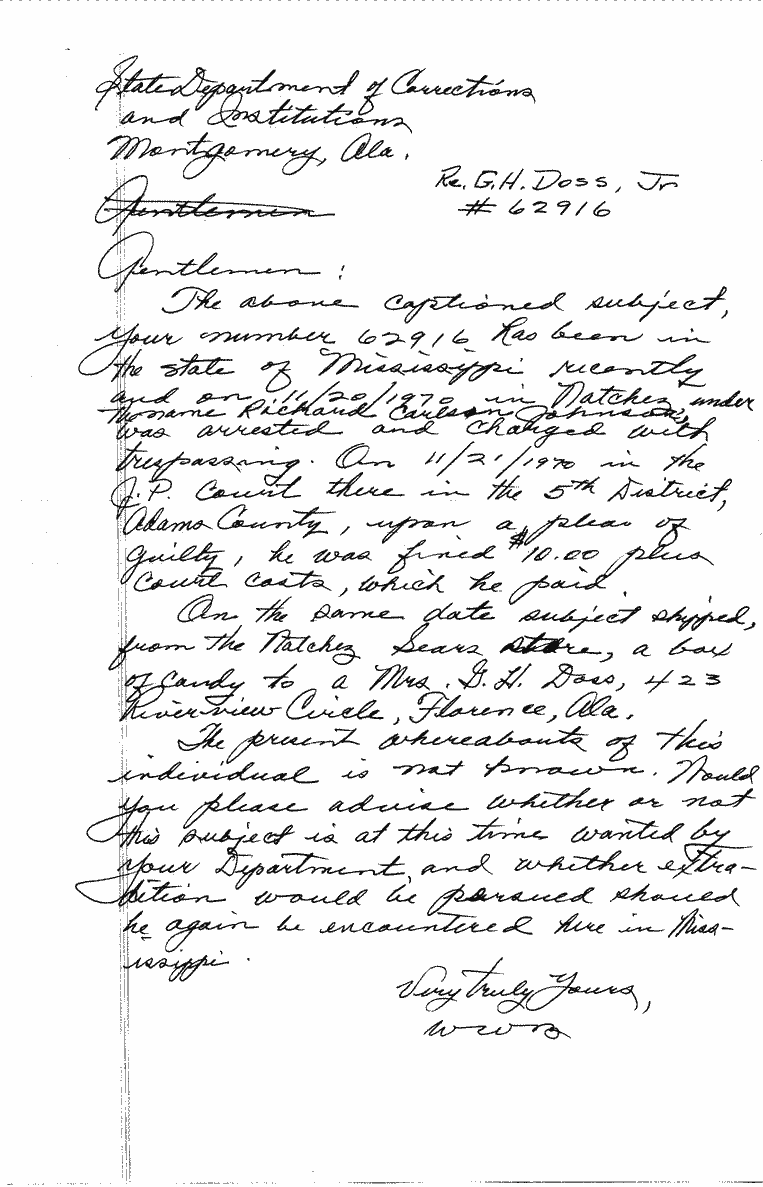 State Department of Corrections
and Institutions
Montgomery, Ala.
Re. G.H. Doss, Jr
# 62916
Gentlemen
Gentlemen :
The above captioned subject,
your number 62916 has been in
the state of Mississippi recently
and on 11/20/1970 in Natchez, under
the name Richard Carlson Johnson,
was arrested and charged with
trespassing. On 11/21/1970 in the
J.P. Court there in the 5th District,
Adams County, upon a plea of
guilty, he was fined $10.00 plus
court costs, which he paid.
On the same date subject shipped,
from the Natchez Sears store, a box
of candy to a Mrs. G.H. Doss, 423
Riverview Circle, Florence, Ala.
The present whereabouts of this
individual is not known. Would
you please advise whether or not
this subject is at this time wanted by
your Department and whether extra-
dition would be persued should
he again be encountered here in Miss-
issippi.
Very truly Yours,
WWB